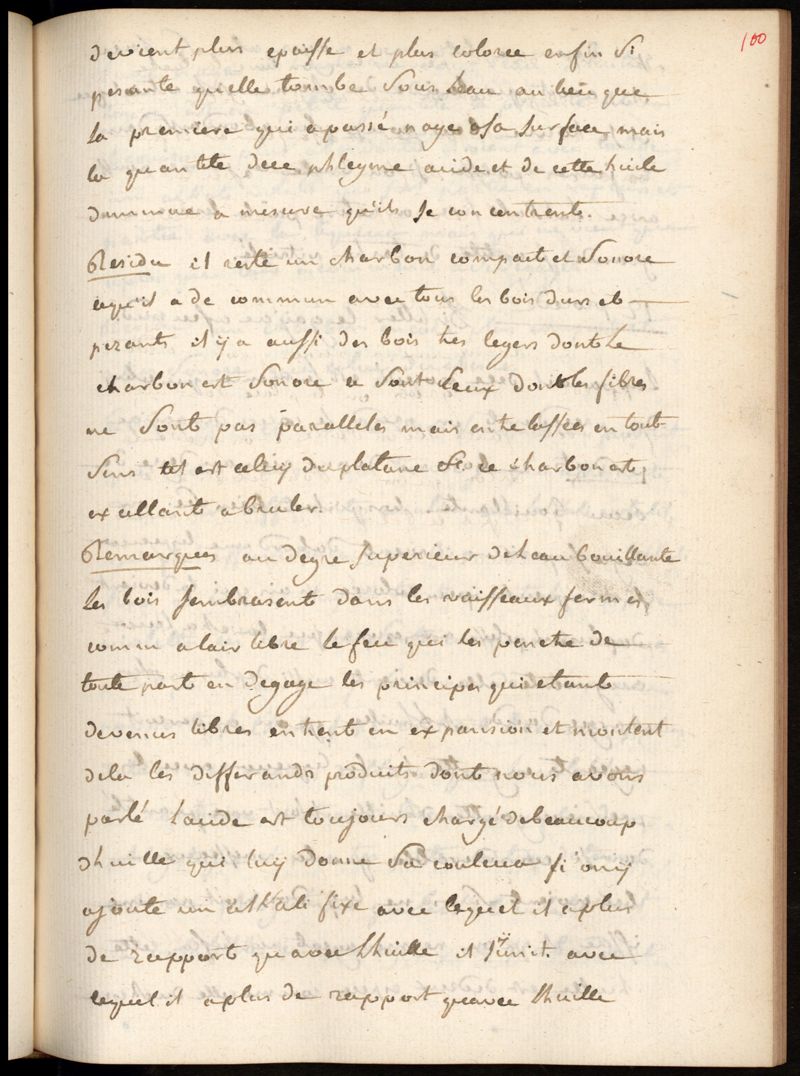 100
devient plus epaisse et plus coloree enfin Si
pesante qu'elle tombe Sous Leau au lieu que
la premiere qui a passé nage a Sa Surface, mais
la quantite de ce phlegme acide et de cette huile
diminue a mesure qu'ils Se concentrent.
Residu il reste un charbon compact et Sonore
cequ'il a de commun avec tous les bois durs et
pezants il y a aussi des bois tres legers dont Le
charbon est Sonore ce Sont Ceux dont les fibres
ne Sont pas paralleles mais entrelassées en tout
Sens tel est celuy du platane Et ce charbon est
excellant a bruler.
Remarques au degre Superieur de Leau bouillante
les bois Sembrasent dans les vaisseaux fermes
comm a lair libre le feu qui les penetre de
toute part en degage les principes qui etant
devenus libres entrent en expansion et montent
dela les differands produits dont nous avons
parlé Lacide est toujours chargé de beaucoup
d'huille qui luy donne Sa couleur Si on y
ajoute un alkali fixe avec lequel il a plus
de rapport qu avec Lhuille il S'y unit avec
lequel il a plus de rapport quavec lhuille